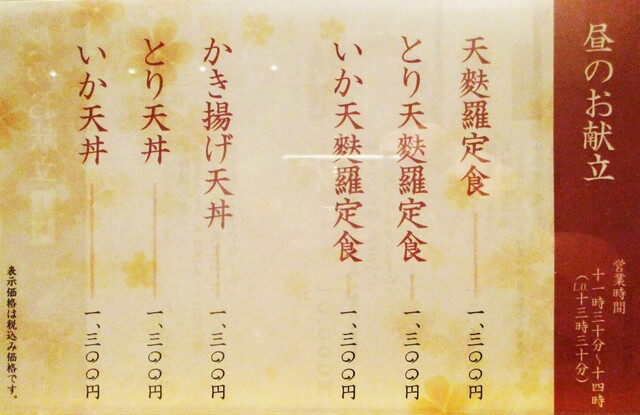 昼のお献立
営業時間
十一時三十分〜十四時
（L.O.十三時三十分）
天麩羅定食 一、三〇〇円
とり天麩羅定食 一、三〇〇円
いか天麩羅定食 一、三〇〇円
かき揚げ天丼 一、三〇〇円
とり天丼 一、三〇〇円
いか天丼 一、三〇〇円
表示価格は税込み価格です。